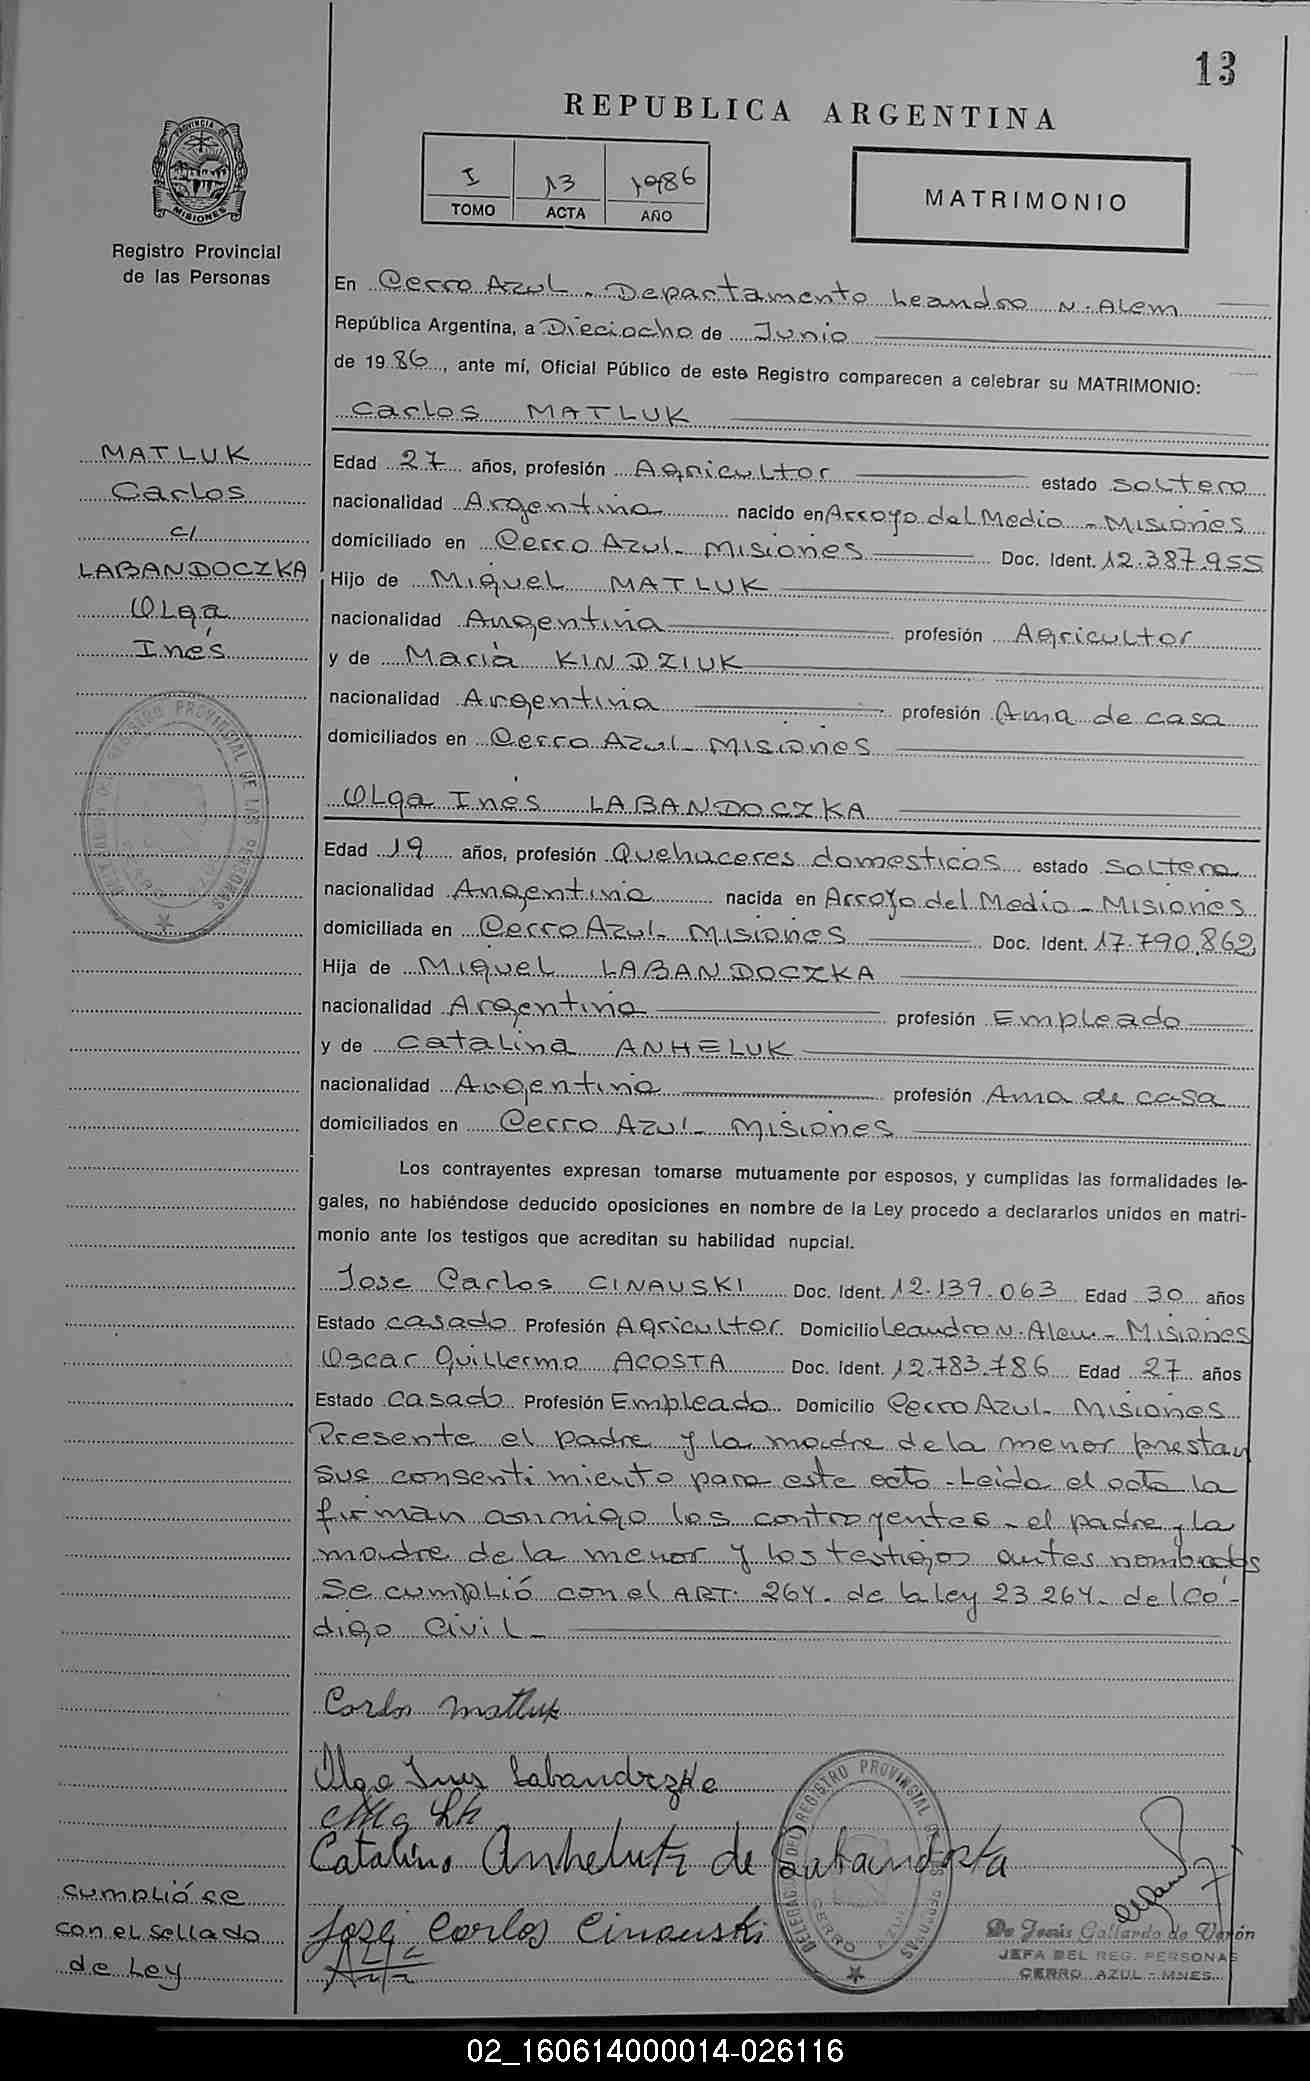 13
REPUBLICA ARGENTINA
PROVINCIA DE
MISIONES
Registro Provincial
de las Personas
I 13 1986
TOMO ACTA AÑO
MATRIMONIO
En Cerro Azul - Departamento Leandro N. Alem
República Argentina, a Dieciocho de Junio
de 1986, ante mí, Oficial Público de este Registro comparecen a celebrar su MATRIMONIO:
Carlos MATLUK
MATLUK
Carlos
c/
LABANDOCZKA
Olga
Inés
Edad 27 años, profesión Agricultor estado soltero
nacionalidad Argentina nacido en Arroyo del Medio - Misiones
domiciliado en Cerro Azul - Misiones Doc. Ident. 12.387.955
Hijo de Miguel MATLUK
nacionalidad Argentina profesión Agricultor
y de Maria KINDZIUK
nacionalidad Argentina profesión Ama de casa
domiciliados en Cerro Azul - Misiones
Olga Inés LABANDOCZKA
Edad 19 años, profesión Quehaceres domesticos estado soltera
nacionalidad Argentina nacida en Arroyo del Medio - Misiones
domiciliada en Cerro Azul - Misiones Doc. Ident. 17.790.862
Hija de Miguel LABANDOCZKA
nacionalidad Argentina profesión Empleado
y de Catalina ANHELUK
nacionalidad Argentina profesión Ama de casa
domiciliados en Cerro Azul - Misiones
Los contrayentes expresan tomarse mutuamente por esposos, y cumplidas las formalidades le-
gales, no habiéndose deducido oposiciones en nombre de la Ley procedo a declararlos unidos en matri-
monio ante los testigos que acreditan su habilidad nupcial.
Jose Carlos CINAUSKI Doc. Ident. 12.139.063 Edad 30 años
Estado casado Profesión Agricultor Domicilio Leandro N. Alem - Misiones
Oscar Guillermo ACOSTA Doc. Ident. 12.783.786 Edad 27 años
Estado casado Profesión Empleado Domicilio Cerro Azul - Misiones
Presente el padre y la madre de la menor prestan
sus consentimiento para este acto - Leida el acta la
firman conmigo los contrayentes - el padre y la
madre de la menor y los testigos antes nombrados
Se cumplió con el ART. 264. de la ley 23264. del Có-
digo Civil -
Carlos Matluk
Olga Ines
Catalina de
José Carlos Cinauski
cumplióse
con el sellado
de Ley
DELEGACION DEL REGISTRO PROVINCIAL DE LAS PERSONAS
CERRO AZUL
De Jesús Gallardo de Verón
JEFA DEL REG. PERSONAS
CERRO AZUL - MNES.
02_160614000014-026116